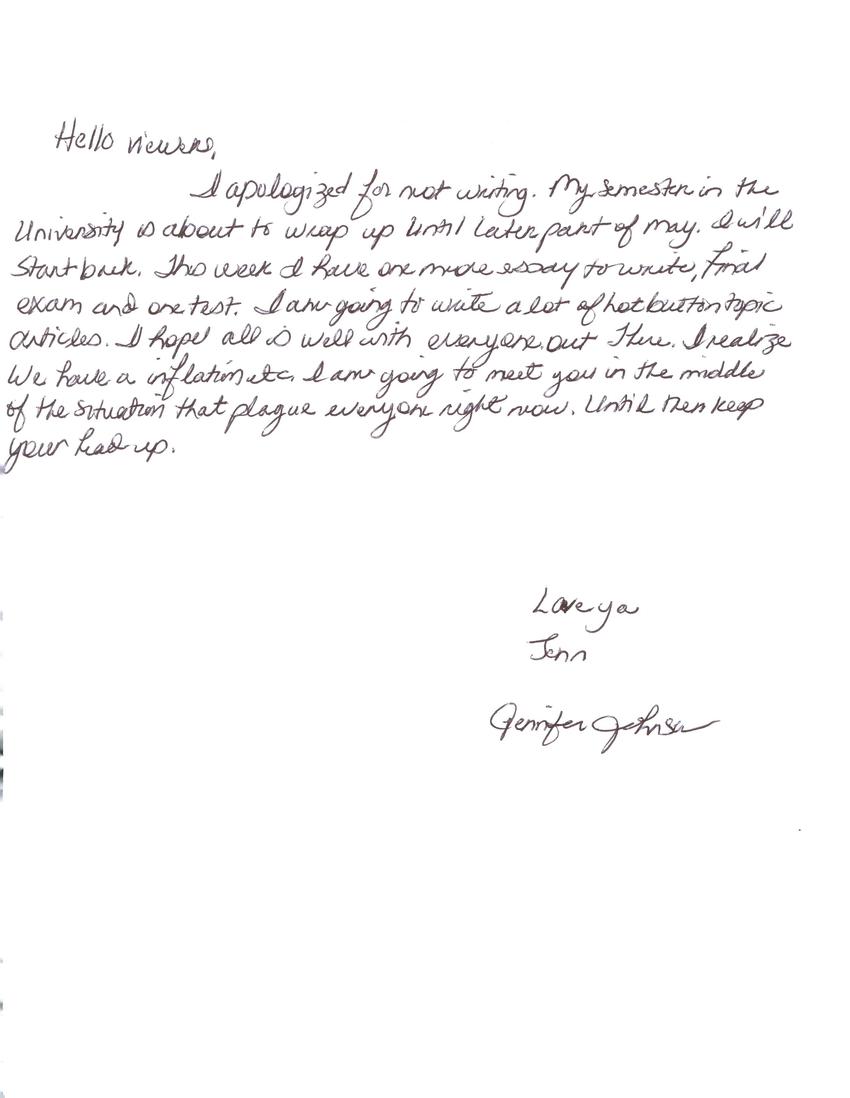 Hello viewers,
I apologized for not writing. My semester in the
University is about to wrap up until later part of may. I will
start back. This week I have one more essay to write, final
exam and one test. I am going to write a lot of hot button topic
articles. I hope all is well with everyone out there. I realize
We have a inflation etc. I am going to meet you in the middle
of the situation that plague everyone right now. Until then keep
your head up.
Love ya
Jenn
Jennifer Johnson